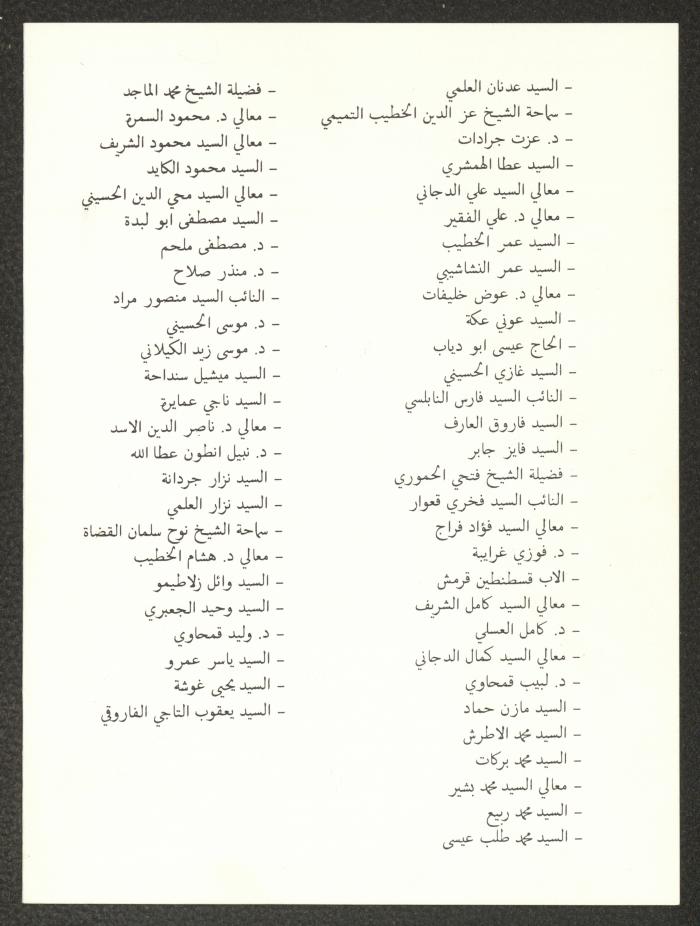 - السيد عدنان العلمي
- سماحة الشيخ عز الدين الخطيب التميمي
- د. عزت جرادات
- السيد عطا الهمشري
- معالي السيد علي الدجاني
- معالي د. علي الفقير
- السيد عمر الخطيب
- السيد عمر النشاشيبي
- معالي د. عوض خليفات
- السيد عوني عكة
- الحاج عيسى ابو دياب
- السيد غازي الحسيني
- النائب السيد فارس النابلسي
- السيد فاروق العارف
- السيد فايز جابر
- فضيلة الشيخ فتحي الحموري
- النائب السيد فخري قعوار
- معالي السيد فؤاد فراج
- د. فوزي غرايبة
- الاب قسطنطين قرمش
- معالي السيد كامل الشريف
- د. كامل العسلي
- معالي السيد كمال الدجاني
- د. لبيب قمحاوي
- السيد مازن حماد
- السيد محمد الاطرش
- السيد محمد بركات
- معالي السيد محمد بشير
- السيد محمد ربيع
- السيد محمد طلب عيسى
- فضيلة الشيخ محمد الماجد
- معالي د. محمود السمرة
- معالي السيد محمود الشريف
- السيد محمود الكايد
- معالي السيد محي الدين الحسيني
- السيد مصطفى ابو لبدة
- د. مصطفى ملحم
- د. منذر صلاح
- النائب السيد منصور مراد
- د. موسى الحسيني
- د. موسى زيد الكيلاني
- السيد ميشيل سنداحة
- السيد ناجي عمايرة
- معالي د. ناصر الدين الاسد
- د. نبيل انطون عطا الله
- السيد نزار جردانة
- السيد نزار العلمي
- سماحة الشيخ نوح سلمان القضاة
- معالي د. هشام الخطيب
- السيد وائل زلاطيمو
- السيد وحيد الجعبري
- د. وليد قمحاوي
- السيد ياسر عمرو
- السيد يحيى غوشة
- السيد يعقوب التاجي الفاروقي